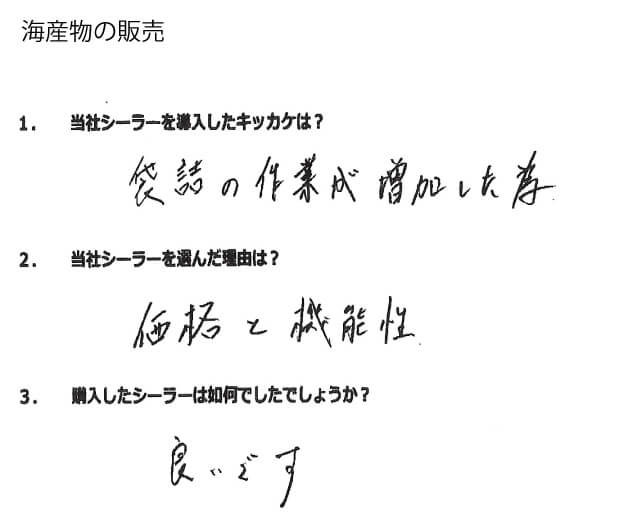 海産物の販売
1. 当社シーラーを導入したキッカケは？
袋詰の作業が増加した為
2. 当社シーラーを選んだ理由は？
価格と機能性
3. 購入したシーラーは如何でしたでしょうか？
良いです